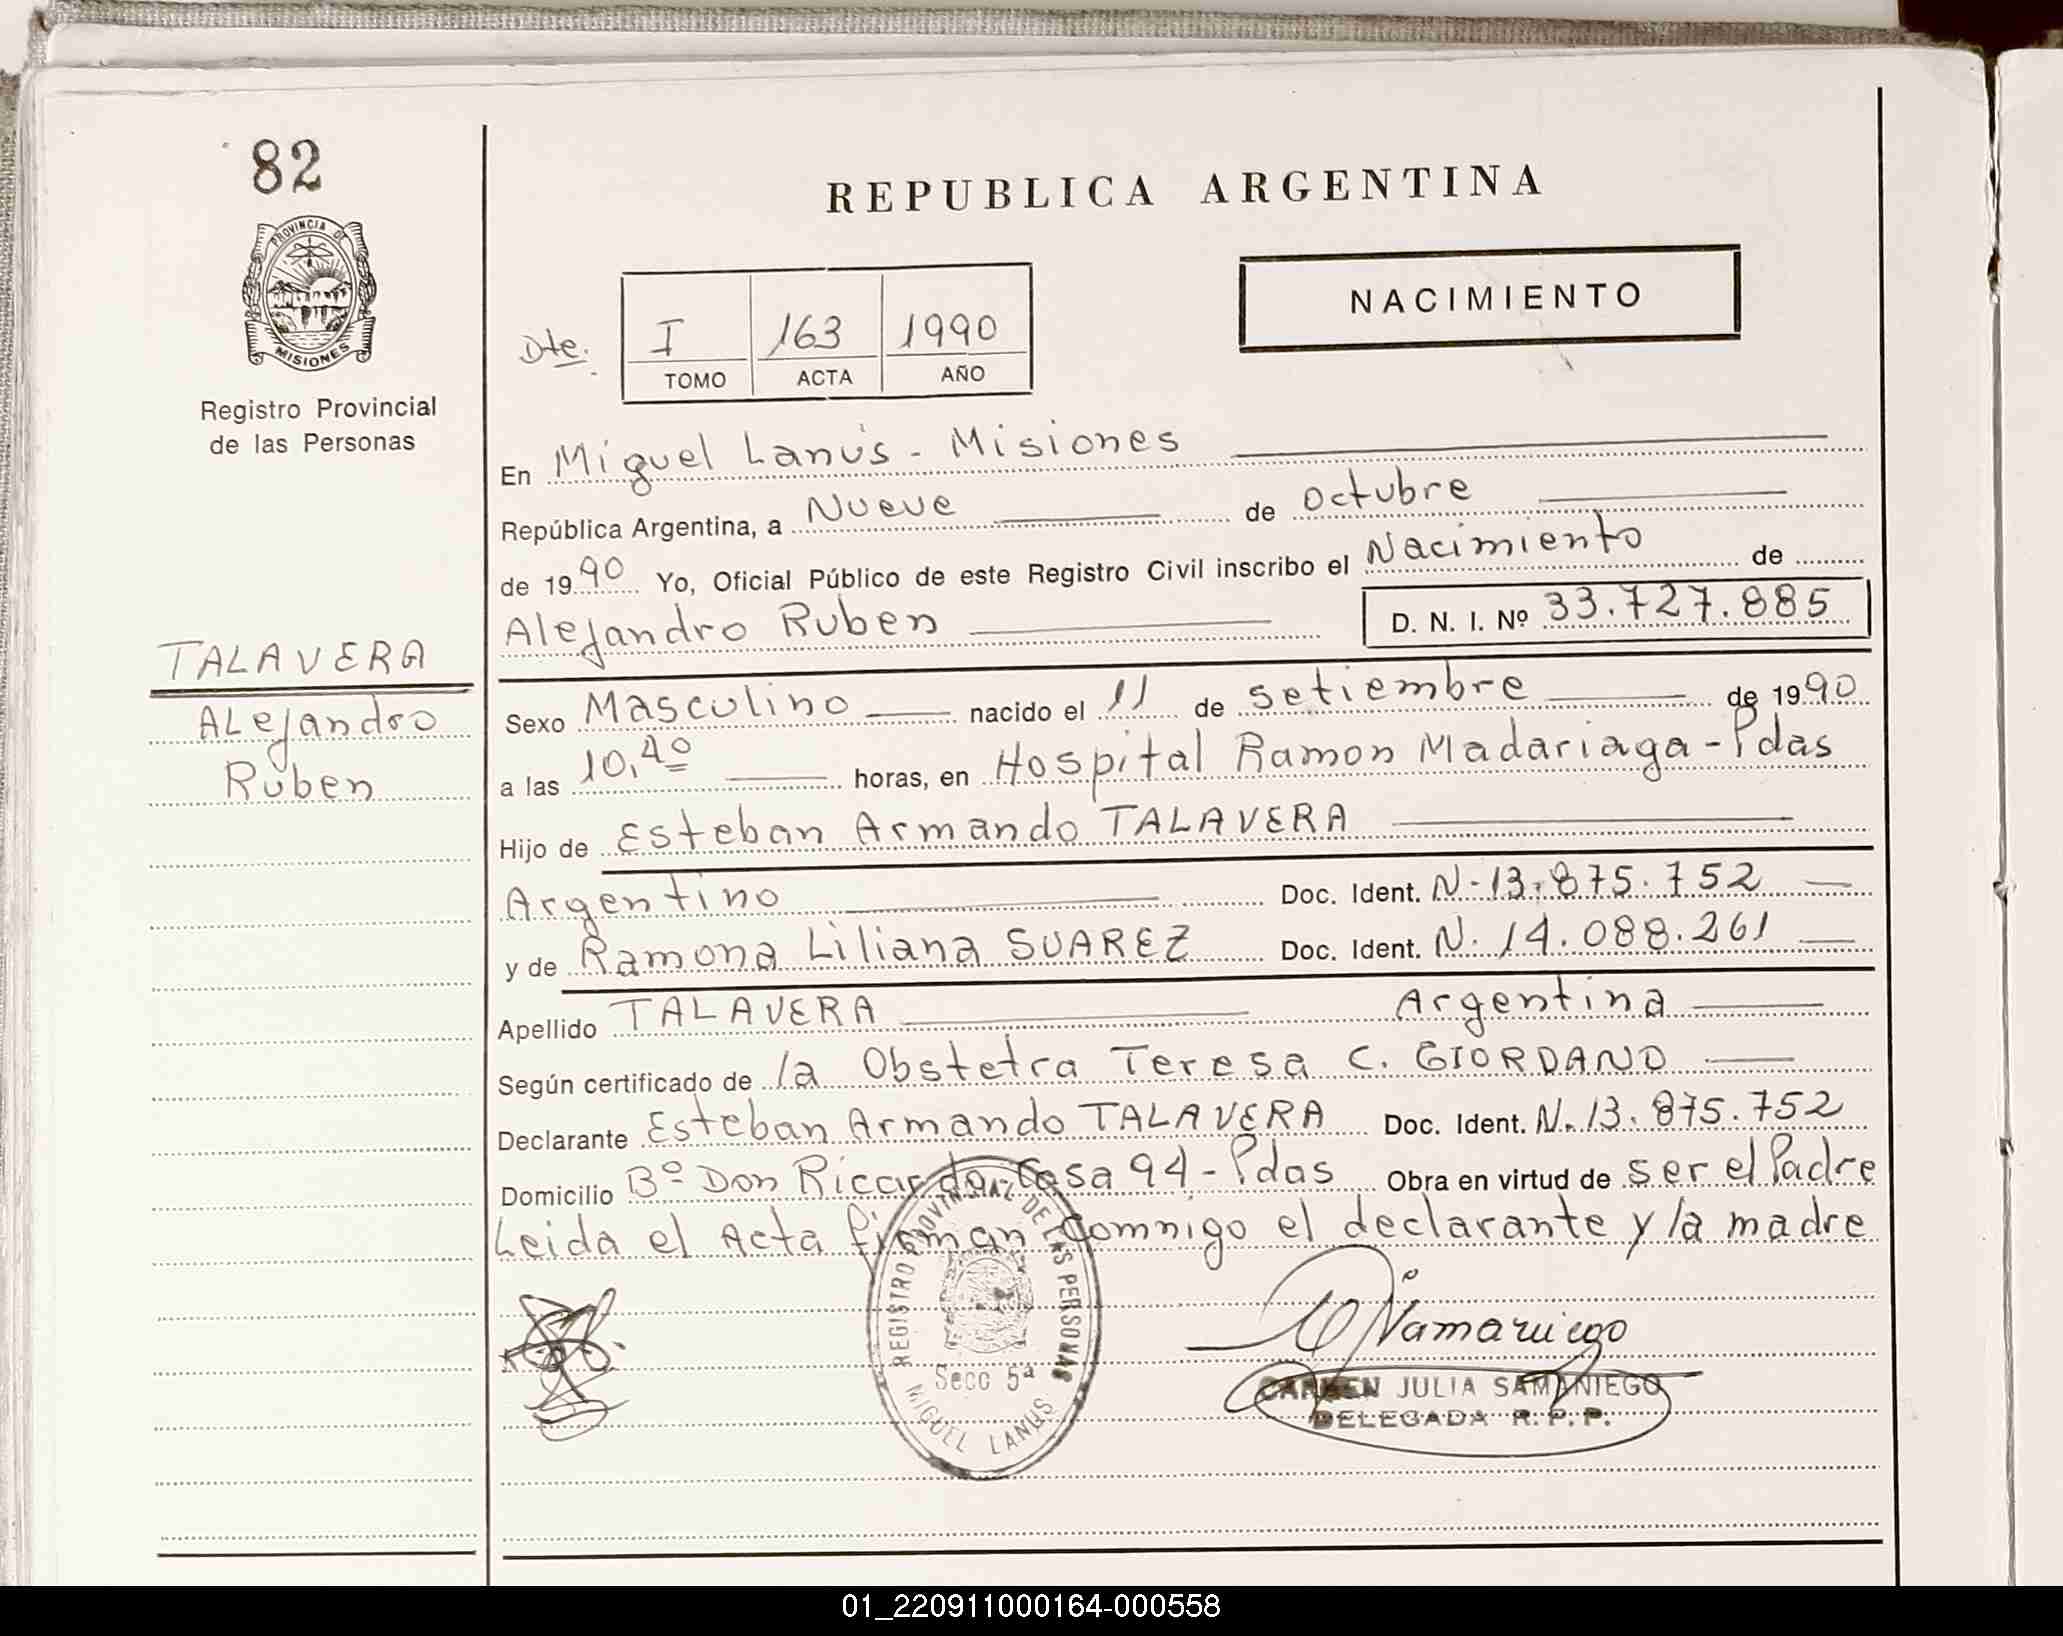 82
PROVINCIA DE
MISIONES
Registro Provincial
de las Personas
TALAVERA
Alejandro
Ruben
REPUBLICA ARGENTINA
NACIMIENTO
Dte.
I 163 1990
TOMO ACTA AÑO
En Miguel Lanús - Misiones
República Argentina, a Nueve de Octubre
de 1990 Yo, Oficial Público de este Registro Civil inscribo el Nacimiento de
Alejandro Ruben D. N. I. Nº 33.727.885
Sexo Masculino nacido el 11 de Setiembre de 1990
a las 10,40 horas, en Hospital Ramon Madariaga - Pdas
Hijo de Esteban Armando TALAVERA
Argentino Doc. Ident. N-13.875.752
y de Ramona Liliana SUAREZ Doc. Ident. N. 14.088.261
Apellido TALAVERA Argentina
Según certificado de la Obstetra Teresa C. GIORDANO
Declarante Esteban Armando TALAVERA Doc. Ident. N.13.875.752
Domicilio Bº Don Ricardo Casa 94 - Pdas Obra en virtud de ser el Padre
Leida el Acta firman comnigo el declarante y la madre
REGISTRO PROVINCIAL DE LAS PERSONAS
Secc 5ª
MIGUEL LANUS
CARMEN JULIA SAMANIEGO
DELEGADA R. P. P.
01_220911000164-000558